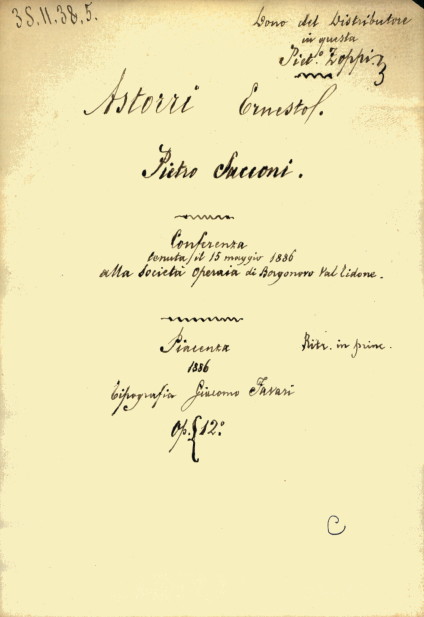 35.11.38.5.
Dono del Distributore
in questa
Piet.º Zoppi
Astorri Ernesto.
Pietro Giacconi.
Conferenza
tenuta il 15 maggio 1886
alla Società Operaia di Borgonovo Val Tidone.
Piacenza
1886
Ritr. in princ.
Tipografia Giacomo Favari
Op. { 12.º
C